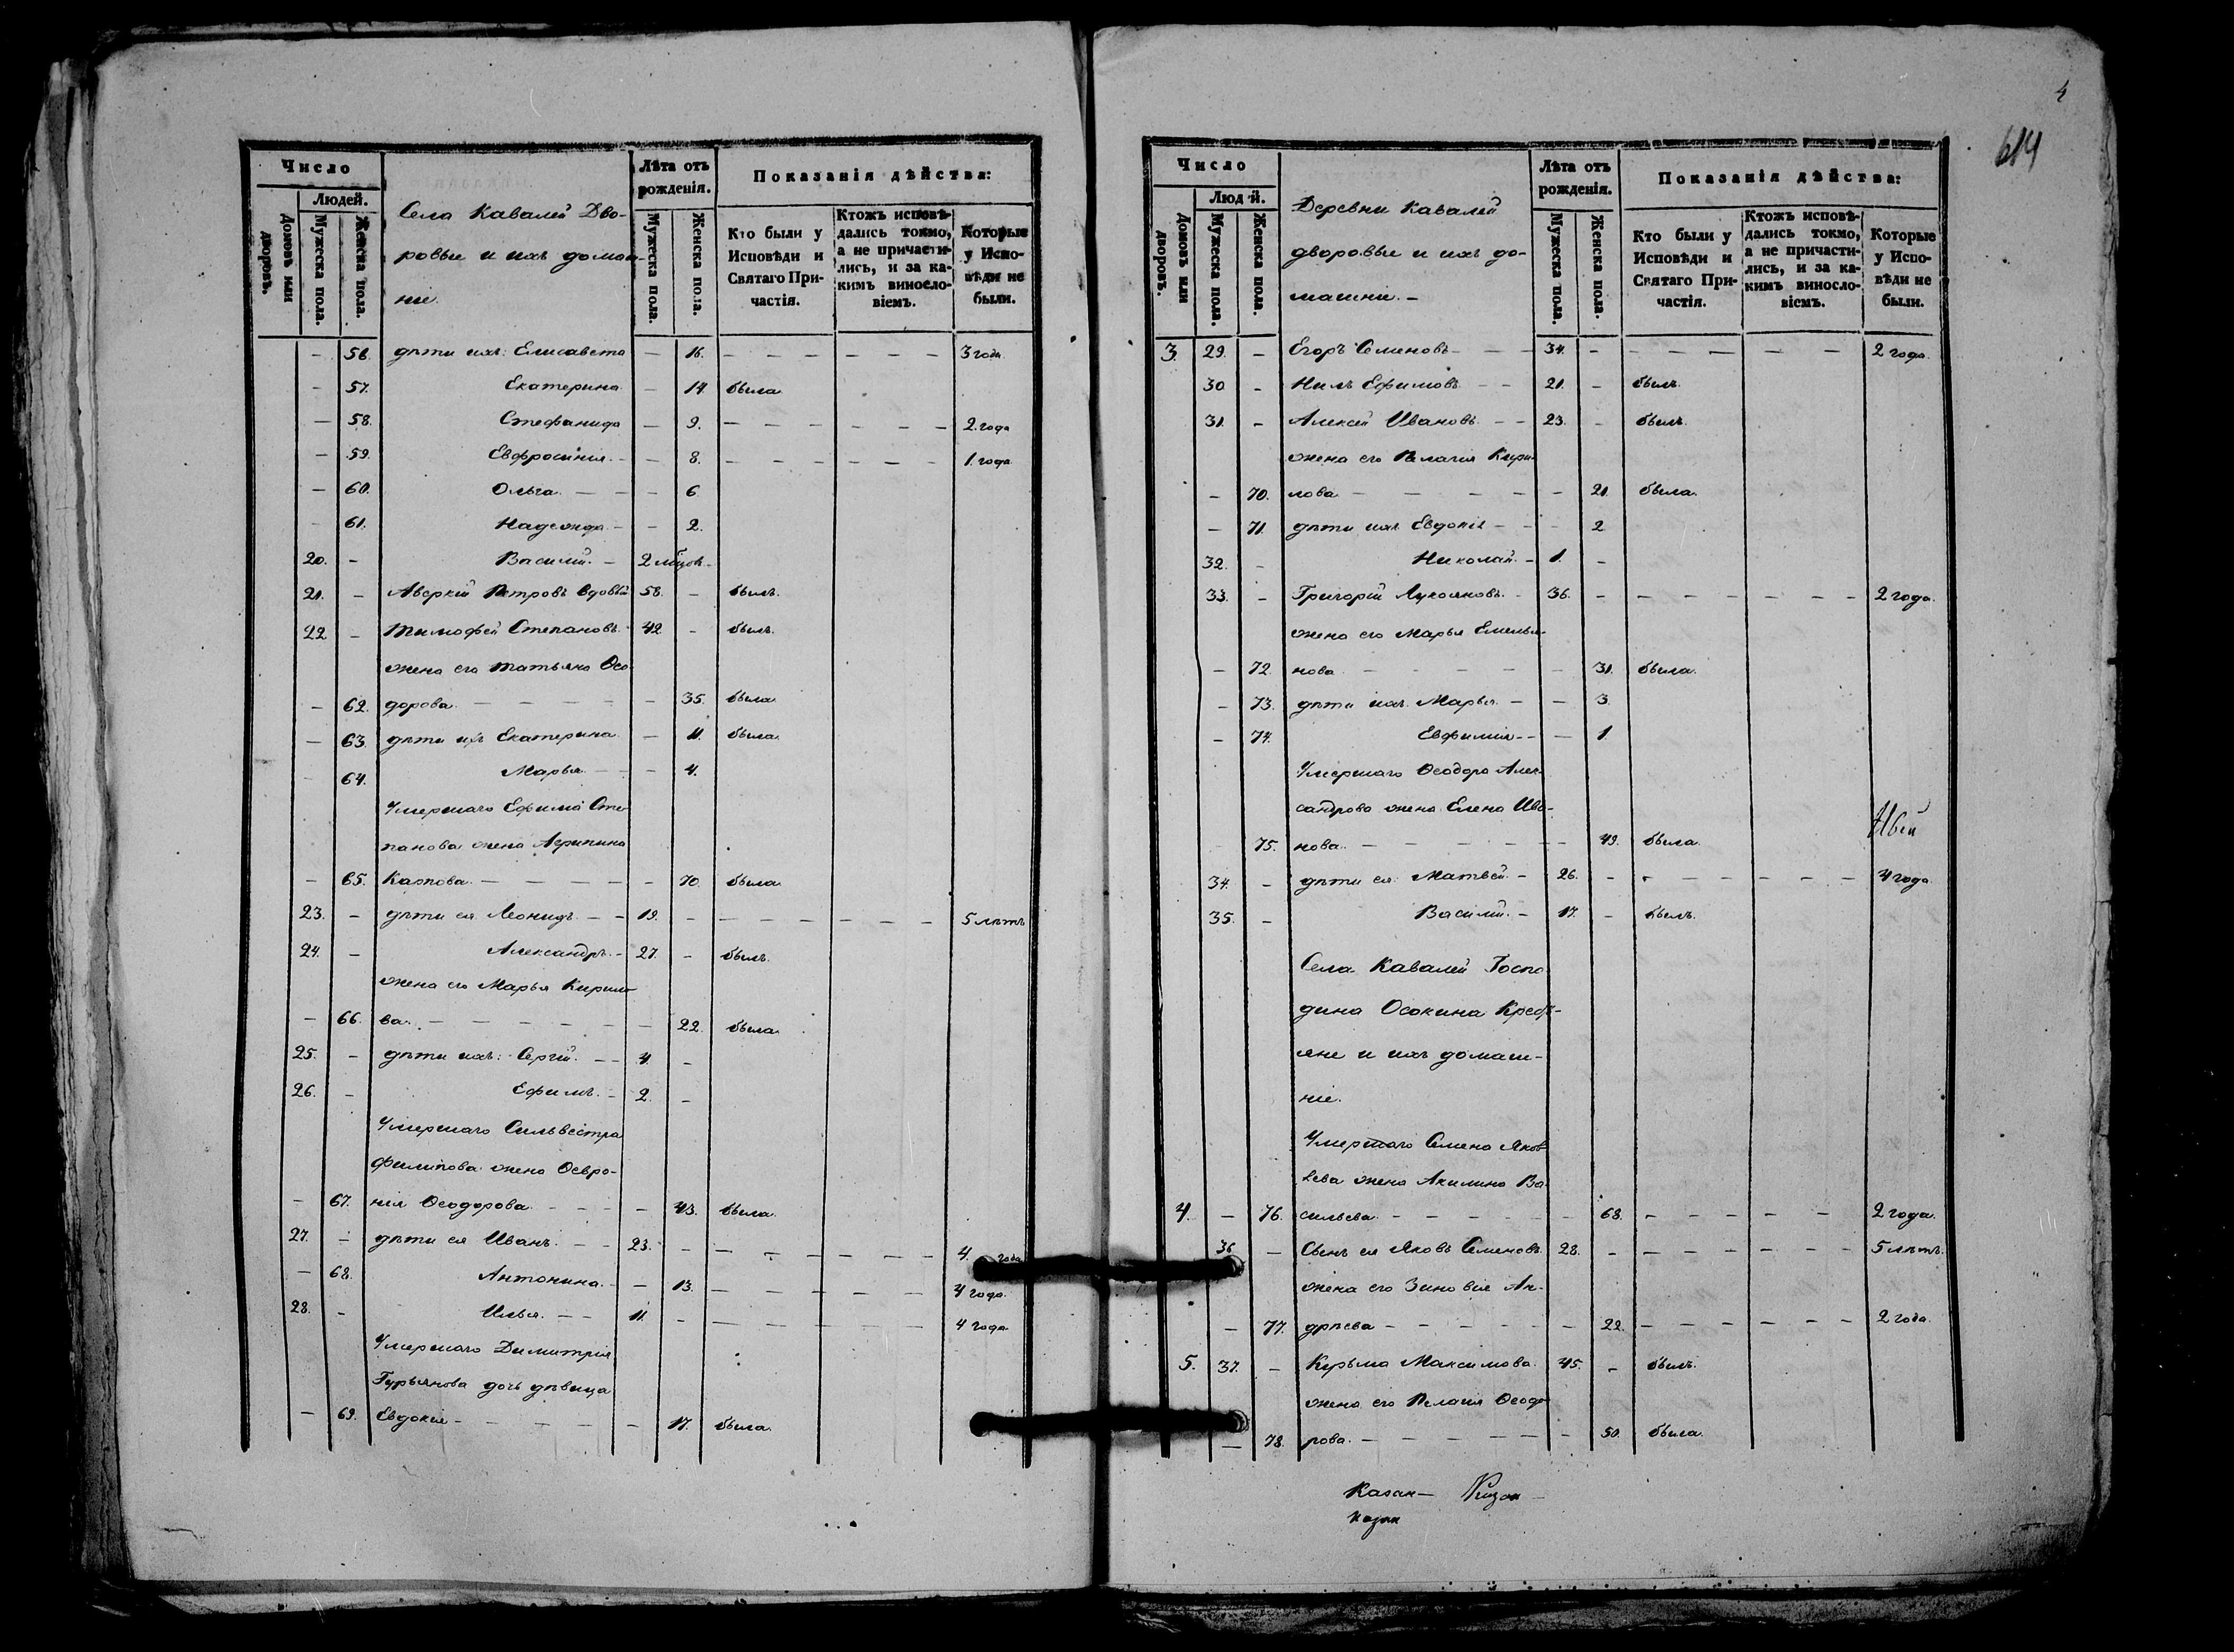 4
614
Число
Людей.
Домовъ или дворовъ.
Мужеска пола.
Женска пола.
Села Кавалей Дво-
ровые и ихъ домаш-
ніе.
Лѣта отъ рожденія.
Мужеска пола.
Женска пола.
Показанія дѣйства:
Кто были у Исповѣди и Святаго При-частія.
Ктожъ исповѣ-дались токмо, а не причасти-лись, и за ка-кимъ винословіемъ.
Которые у Испо-вѣди не были.
— 56. дѣти ихъ: Елисавета — 16. — — — — — — 3 года.
— 57. Екатерина — 14. была
— 58. Стефанида — 9. — — — — — — 2. года
— 59. Евфросинія. — — 8. — — — — — — 1. года
— 60. Ольга. — — — 6
— 61. Надежда. — — 2.
20. — Василій. — 2 мѣсов.
21. — Аверкій Петровъ вдовый 58. — былъ.
22 — Тимофей Степановъ. 42 — былъ.
жена его Татьяна Ѳео-
— 62. дорова. — — — — — 35. была
— 63. дѣти ихъ Екатерина — 11. была.
— 64. Марья — — — 4.
Умершаго Ефима Сте-
панова жена Агрипина
— 65. Карпова. — — — — — 70. была.
23. — дѣти ея Леонидъ. — — 19. — — — — — — — 5 лѣтъ
24. — Александръ. — 27. — былъ.
жена его Марья Кирило-
— 66. ва. — — — — — — — 22. была.
25. — дѣти ихъ: Сергій. — — 4 —
26. — Ефимъ. — 2. —
Умершаго Сильвестра
Филипова жена Ѳевро-
— 67. нія Ѳеодорова. — — — — 43. была.
27. — дѣти ея Иванъ. — — 23. — — — — — — — 4. года
— 68. Антонина. — — 13. — — — — — — 4 года.
28. — Илья. — — 11. — — — — — — — 4 года.
Умершаго Димитрія
Гурьянова дочь дѣвица
— 69. Евдокія — — — — — — 17. была.
Число
Людей.
Домовъ или дворовъ.
Мужеска пола.
Женска пола.
Деревни Кавалей
дворовые и ихъ до-
машніе. —
Лѣта отъ рожденія.
Мужеска пола.
Женска пола.
Показанія дѣйства:
Кто были у Исповѣди и Святаго При-частія.
Ктожъ исповѣ-дались токмо, а не причасти-лись, и за ка-кимъ винословіемъ.
Которые у Испо-вѣди не были.
3. 29. — Егоръ Семеновъ — — — 34. — — — — — — 2 года.
30 — Нилъ Ефимовъ. — — 21. — былъ.
31. — Алексей Ивановъ. — — 23. — былъ.
жена его Пелагія Кири-
— 70. лова. — — — — — — 21. была.
— 71. дѣти ихъ Евдокія — — — 2
32. — Николай. — 1. —
33. — Григорій Лукояновъ. — 36. — — — — — — — 2 года.
жена его Марья Емелья-
— 72. нова — — — — — — 31. была.
— 73. дѣти ихъ. Марья. — — 3.
— 74. Евфимія — — — 1.
Умершаго Ѳеодора Алек-
сандрова жена Елена Ива-
— 75. нова. — — — — — — — 49. была.
34. — дѣти ея: Матвей. — 26. — — — — — — — 4 года.
35. — Василій. — 17. — былъ.
Села Кавалей Госпо-
дина Осокина Кресть-
яне и ихъ домаш-
ніе.
Умершаго Семена Яков-
лева жена Акилина Ва-
4. — 76. сильева. — — — — — — 68. — — — — — 2 года.
36 — Сынъ ея Яковъ Семеновъ. 28. — — — — — — — 5 лѣтъ.
жена его Зиновія Ан-
— 77. дрѣева — — — — — — 22. — — — — — — 2 года.
5. 37. — Курьма Максимова. 45. — былъ.
жена его Пелагія Ѳеодо-
— 78. рова. — — — — — — — 50. была.
Казан —